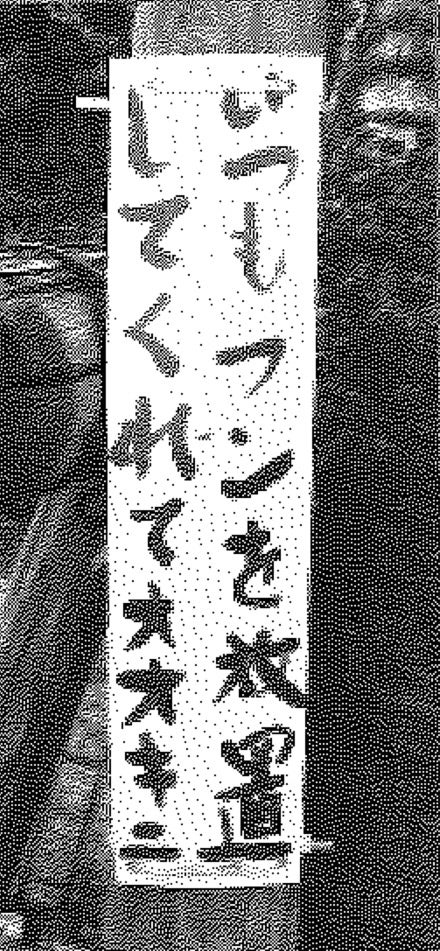 いつもフンを放置
してくれてオオキニ